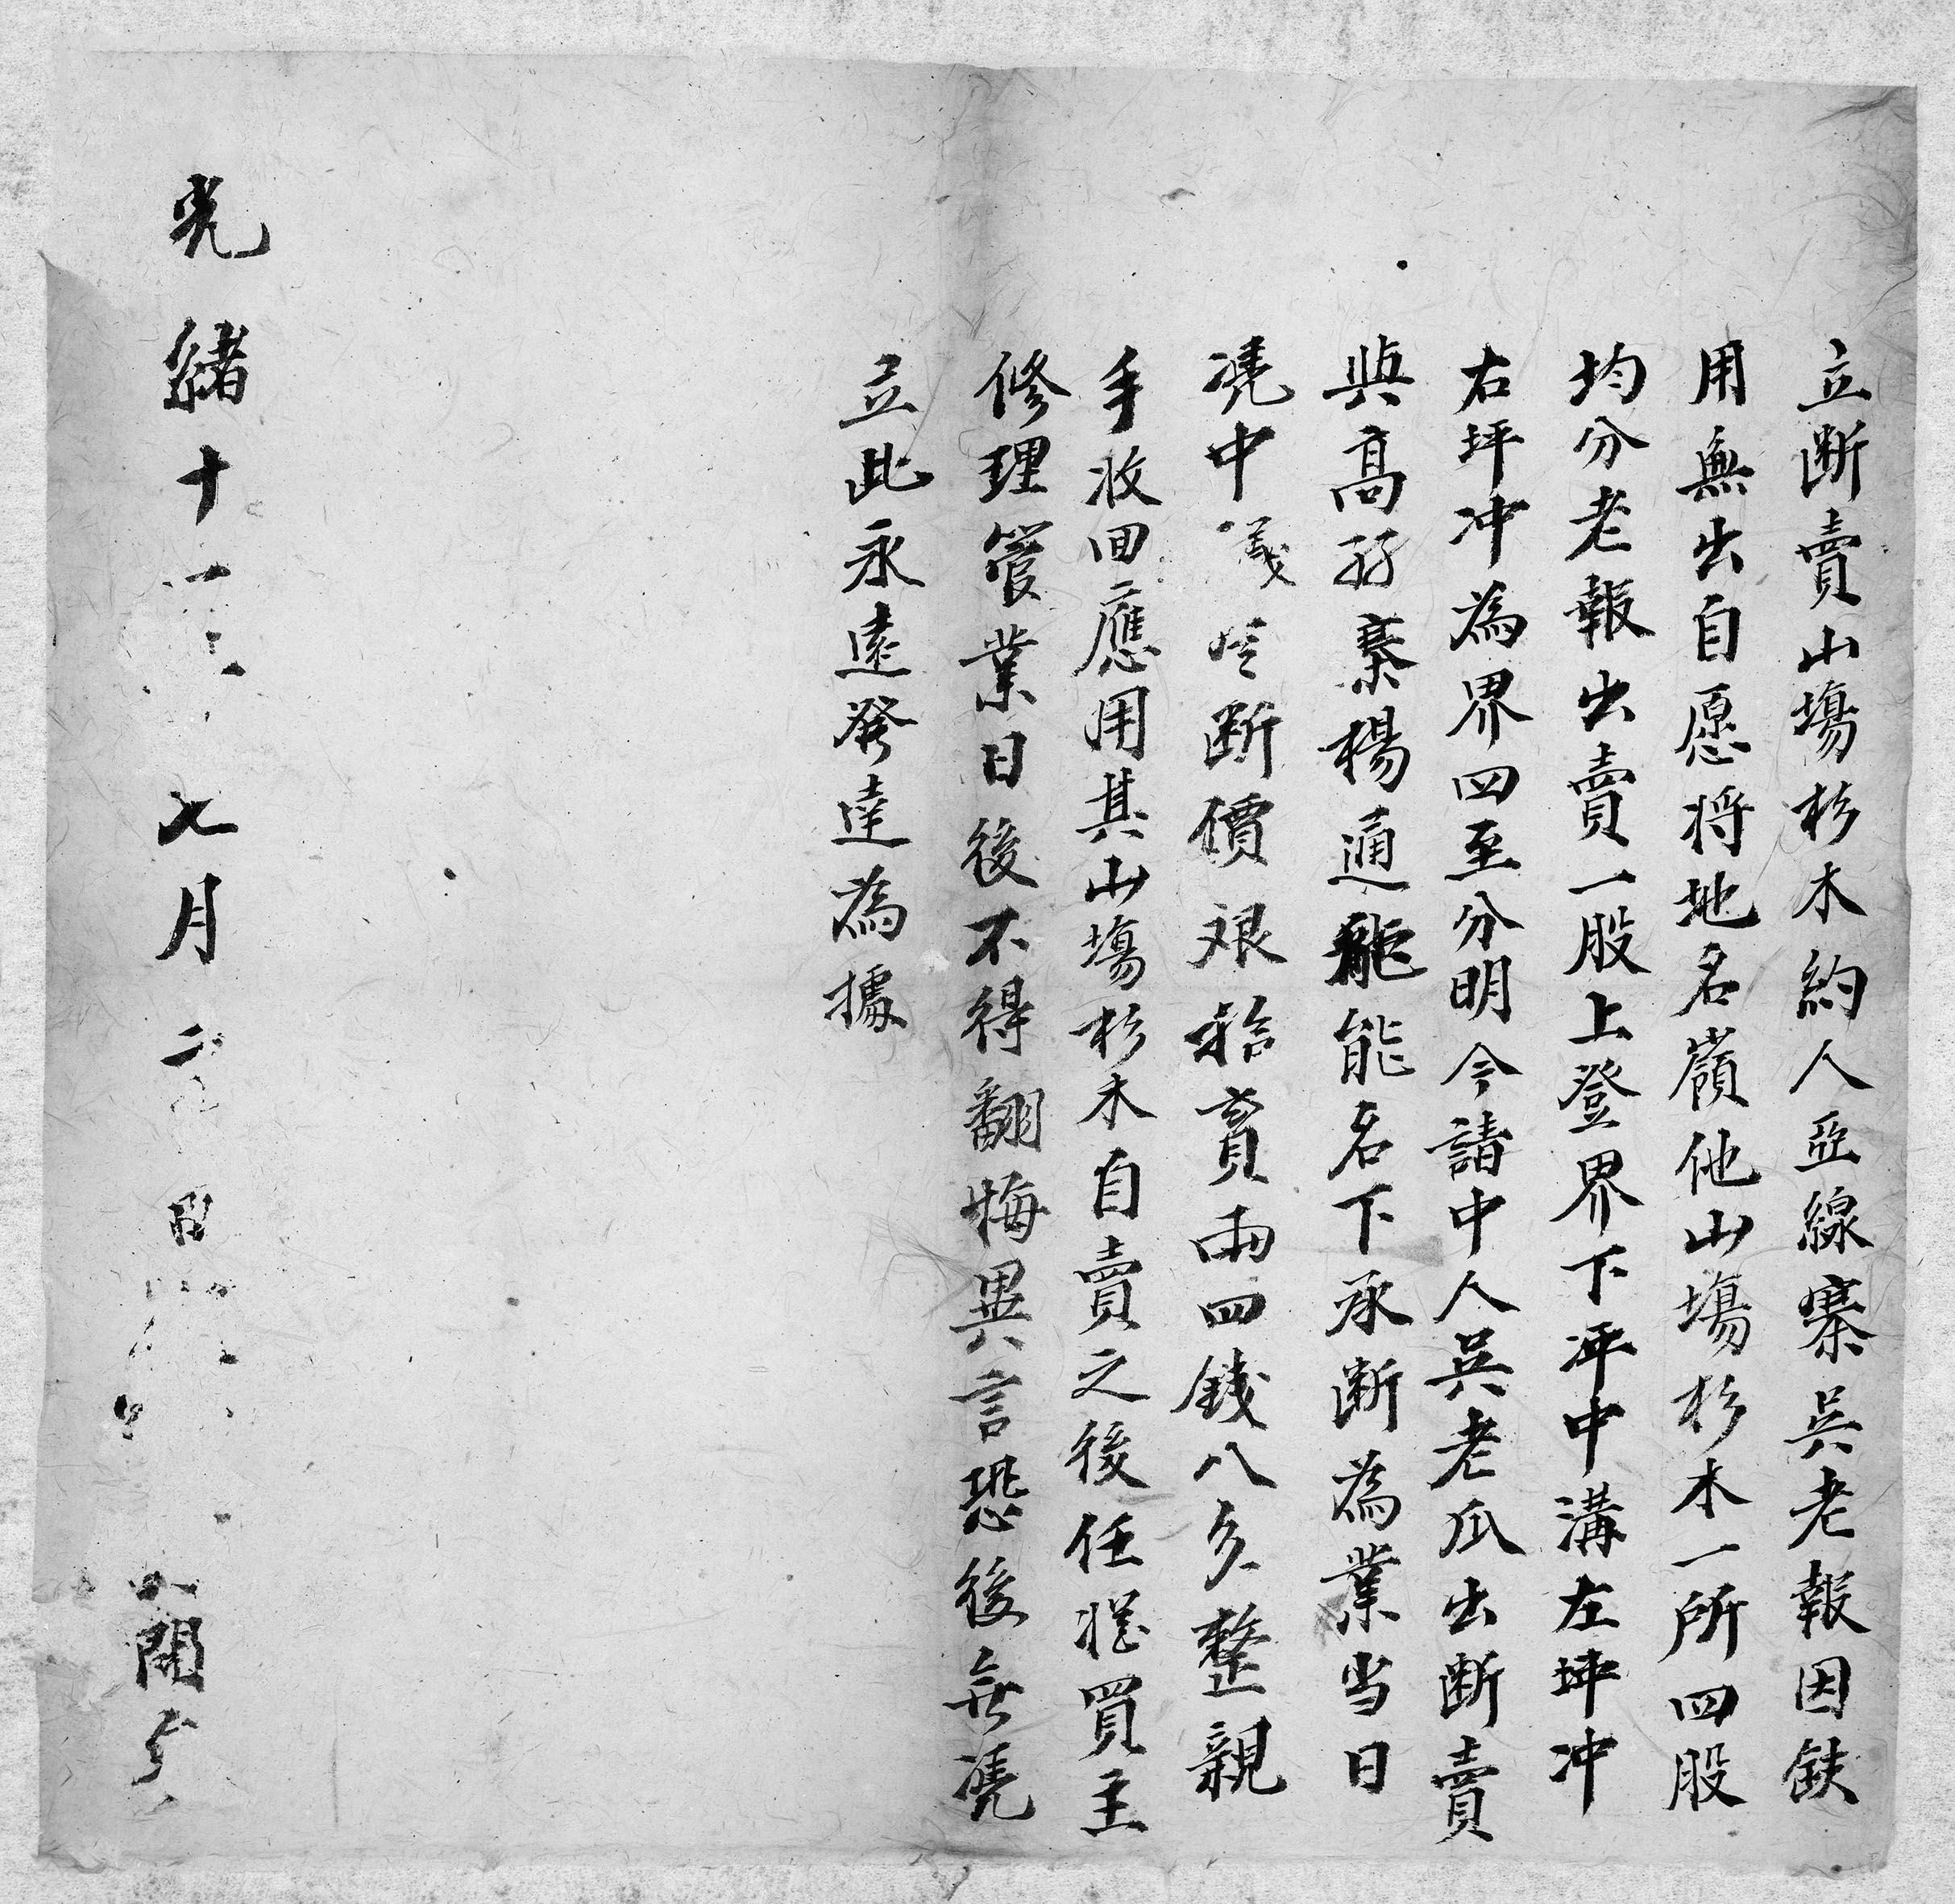 立断賣山塲杉木約人亞線寨吳老報因缺
用無出自愿将地名嶺他山塲杉木一所四股
均分老報出賣一股上登界下坪中溝左坪冲
右坪冲為界四至分明今請中人吳老瓜出断賣
與髙孖寨楊通能名下承断為業当日
凴中議定断價艮拾貳両四錢八分整親
手收回應用其山塲杉木自賣之後任凭買主
修理管業日後不得翻悔異言恐後無凴
立此永遠發達為據
光緒十 七月 日